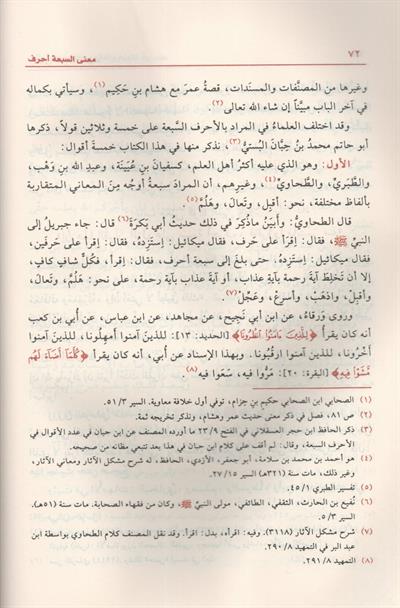 ٧٢
معنى السبعة أحرف
وغيرها من المصنَّفات والمسنَدات، قصةُ عمرَ مع هشامِ بنِ حَكِيم(١)، وسيأتي بكماله
في آخر الباب مبيَّناً إن شاء الله تعالى(٢).
وقد اختلف العلماءُ في المراد بالأحرف السَّبعة على خمسة وثلاثين قولاً، ذكرها
أبو حاتم محمدُ بنُ حِبَّانَ البُسْتيُّ(٣)، نذكر منها في هذا الكتاب خمسةَ أقوال:
الأول: وهو الذي عليه أكثرُ أهل العلم، كسفيانَ بنِ عُيَيْنَة، وعبدِ الله بنِ وَهْب،
والطَّبَريِّ، والطَّحاويِّ(٤)، وغيرِهم، أن المرادَ سبعةُ أوجُهٍ من المعاني المتقاربة
بألفاظ مختلفة، نحو: أقبِل، وتَعالَ، وهَلُمَّ(٥).
قال الطحاويُّ: وأَبيَنُ ماذُكِرَ في ذلك حديثُ أبي بَكرَةَ(٦) قال: جاء جبريلُ إلى
النبيِّ ﷺ، فقال: اِقرَأْ على حَرف، فقال ميكائيل: اِستَزِدْه، فقال: اِقرأ على حَرفَين،
فقال ميكائيل: اِستَزِدْه، حتى بلغَ إلى سبعة أحرف، فقال: اِقرأ، فكُلٌّ شافٍ كافٍ،
إلا أن تَخلِطَ آيةَ رحمة بآية عذاب، أو آيةَ عذاب بآية رحمة، على نحو: هَلُمَّ، وتَعالَ،
وأقبِلْ، واذهَبْ، وأسرِعْ، وعَجِّلْ(٧).
وروى وَرْقاءُ، عن ابن أبي نَجِيح، عن مجاهد، عن ابن عباس، عن أُبي بن كعب
أنه كان يقرأُ ﴿لِلَّذِينَ ءَامَنُوا انظُرُونَا﴾ [الحديد: ١٣]: للذين آمنوا أمهِلُونا، للذين آمنوا
أخِّرُونا، للذين آمنوا ارقُبُونا. وبهذا الإسناد عن أُبي، أنه كان يقرأُ ﴿كُلَّمَا أَضَاءَ لَهُم
مَّشَوْا فِيهِ﴾ [البقرة: ٢٠]: مَرُّوا فيه، سَعَوا فيه(٨).
(١) الصحابي ابن الصحابي حكيمِ بنِ حِزام، توفي أول خلافة معاوية. السير ٥١/٣.
(٢) ص ٨١، فصل في ذكر معنى حديث عمر وهشام، ونذكر تخريجه ثمة.
(٣) ذكر الحافظ ابن حجر العسقلاني في الفتح ٢٣/٩ ما أورده المصنف عن ابن حبان في عدد الأقوال في
الأحرف السبعة، وقال: لم أقف على كلام ابن حبان في هذا بعد تتبعي مظانه من صحيحه.
(٤) هو أحمد بن محمد بن سلامة، أبو جعفر، الأزدي، الحافظ، له شرح مشكل الآثار ومعاني الآثار،
وغير ذلك، مات سنة (٣٢١هـ) السير ٢٧/١٥.
(٥) تفسير الطبري ٤٥/١.
(٦) نُفيع بن الحارث، الثقفي، الطائفي، مولى النبيّ ﷺ، وكان من فقهاء الصحابة. مات سنة (٥١هـ).
السير ٥/٣.
(٧) شرح مشكل الآثار (٣١١٨). وفيه: اقرأه، بدل: اقرأ. وقد نقل المصنف كلام الطحاوي بواسطة ابن
عبد البر في التمهيد ٢٩٠/٨.
(٨) التمهيد ٢٩١/٨.